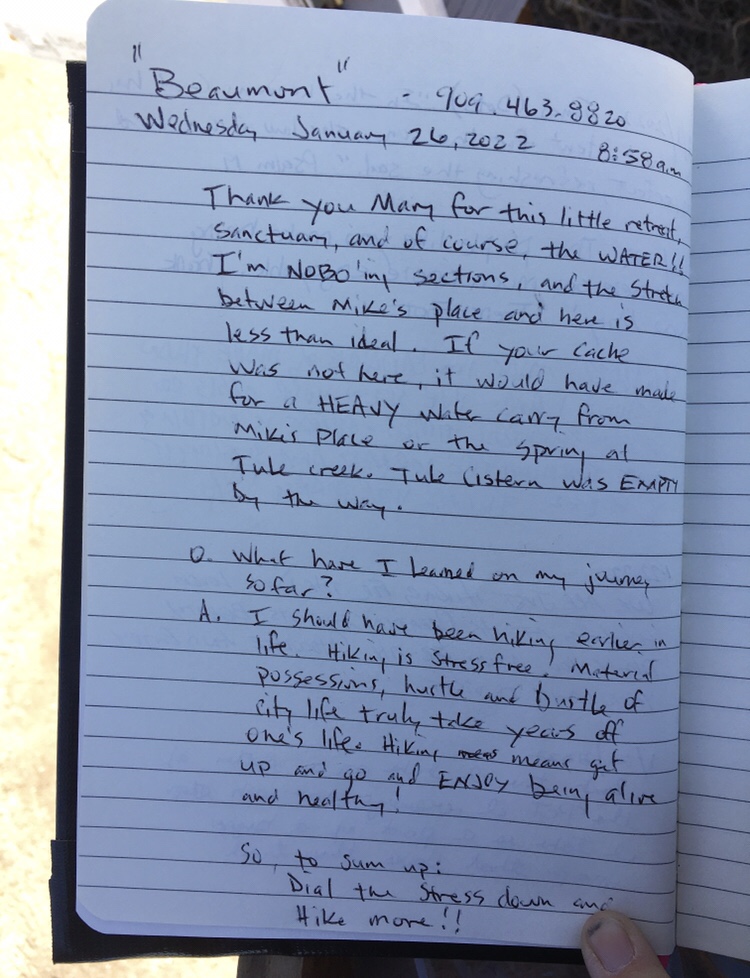 "Beaumont" - 909.463.8820
Wednesday January 26, 2022 8:58am
Thank you Mary for this little retreat,
sanctuary, and of course, the WATER!!
I'm NOBO'ing sections, and the stretch
between Mike's place and here is
less than ideal. If your cache
was not here, it would have made
for a HEAVY water carry from
Mike's Place or the spring at
Tule creek. Tule Cistern was EMPTY
by the way.
Q. What have I learned on my journey
so far?
A. I should have been hiking earlier in
life. Hiking is stress free! Material
possessions, hustle and bustle of
city life truly take years off
one's life. Hiking means get
up and go and ENJOY being alive
and healthy!
So, to sum up:
Dial the stress down and
Hike more!!